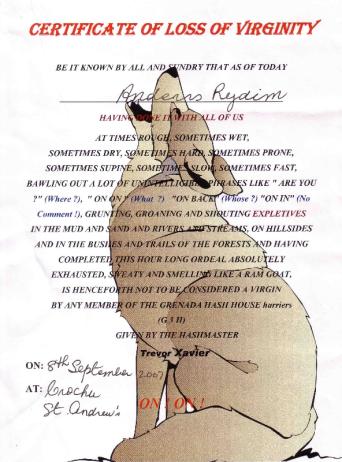 CERTIFICATE OF LOSS OF VIRGINITY
BE IT KNOWN BY ALL AND SUNDRY THAT AS OF TODAY
Anders Rydim
HAVING DONE IT WITH ALL OF US
AT TIMES ROUGH, SOMETIMES WET,
SOMETIMES DRY, SOMETIMES HARD, SOMETIMES PRONE,
SOMETIMES SUPINE, SOMETIMES SLOW, SOMETIMES FAST,
BAWLING OUT A LOT OF UNINTELLIGIBLE PHRASES LIKE " ARE YOU
?" (Where ?), " ON ON " (What ?) "ON BACK" (Whose ?) "ON IN" (No
Comment !), GRUNTING, GROANING AND SHOUTING EXPLETIVES
IN THE MUD AND SAND AND RIVERS AND STREAMS, ON HILLSIDES
AND IN THE BUSHES AND TRAILS OF THE FORESTS AND HAVING
COMPLETED THIS HOUR LONG ORDEAL ABSOLUTELY
EXHAUSTED, SWEATY AND SMELLING LIKE A RAM GOAT,
IS HENCEFORTH NOT TO BE CONSIDERED A VIRGIN
BY ANY MEMBER OF THE GRENADA HASH HOUSE harriers
(G 3 H)
GIVEN BY THE HASHMASTER
Trevor Xavier
ON: 8th September 2007
AT: Crochu
St. Andrew's
ON ! ON !